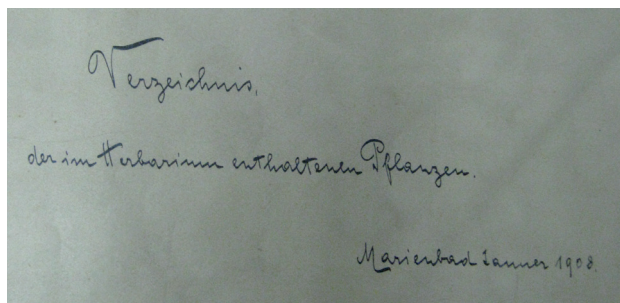 Verzeichnis,
der im Herbarium enthaltenen Pflanzen.
Marienbad Januer 1908.